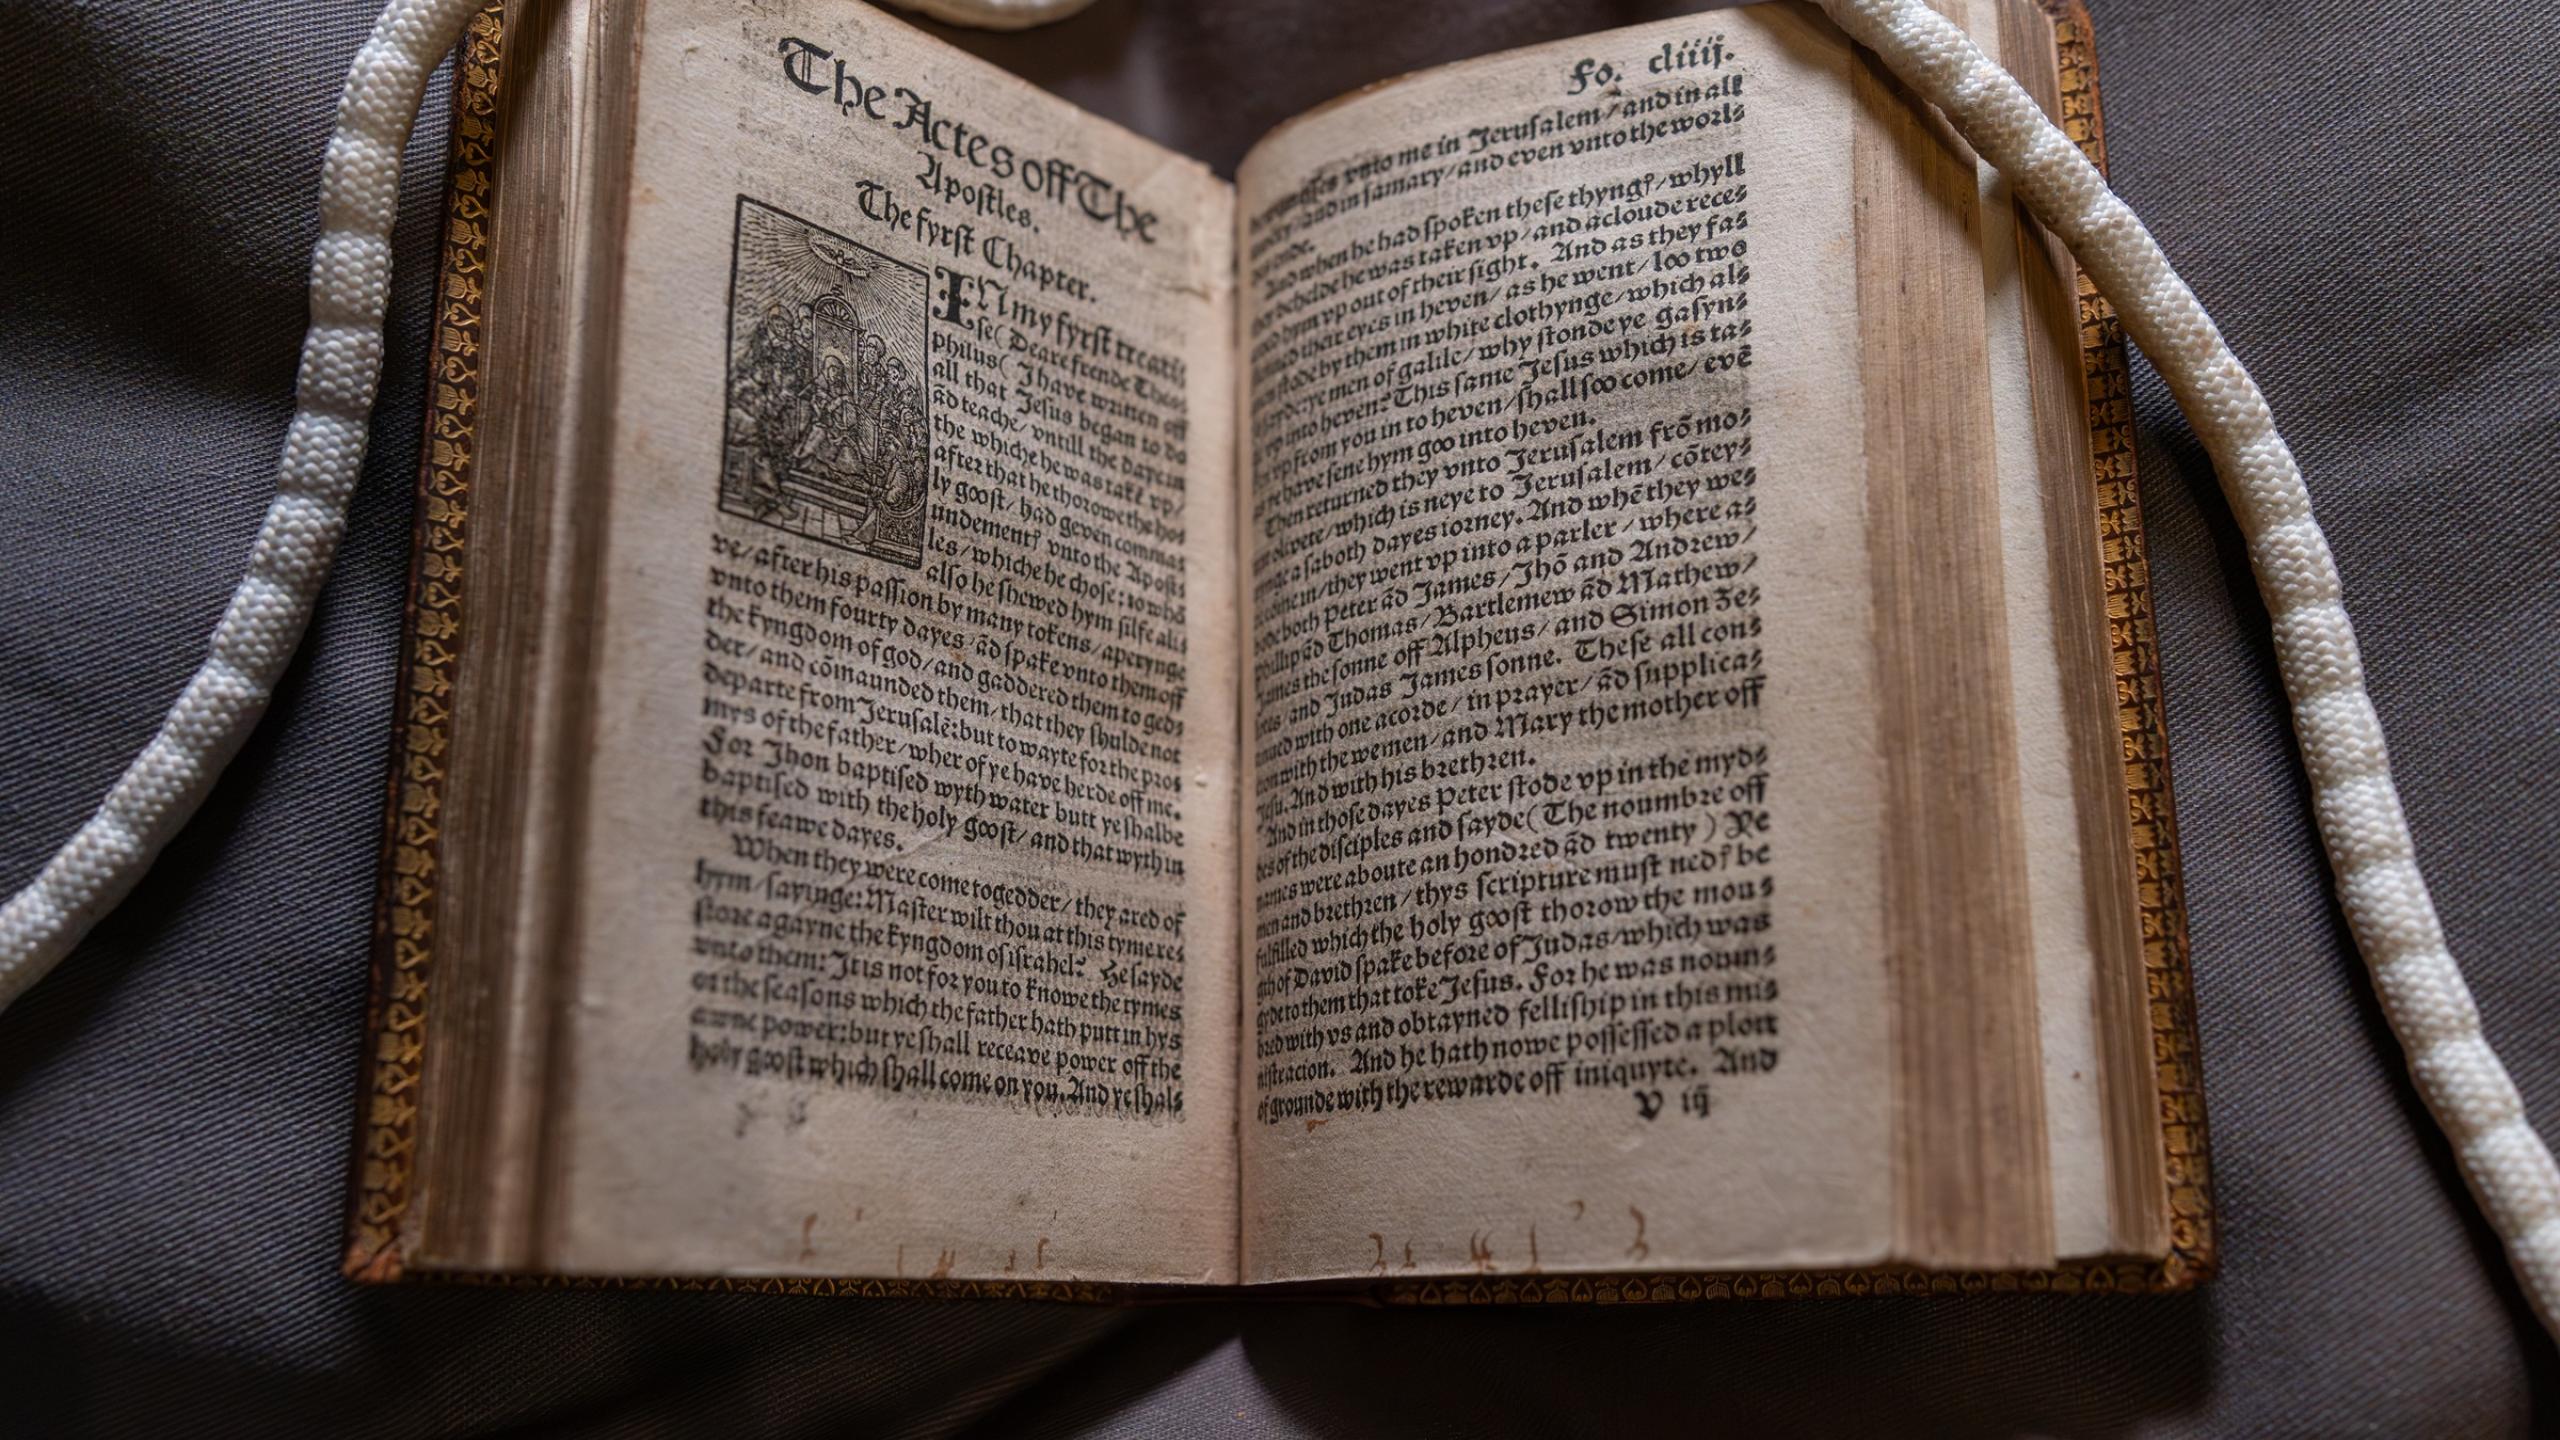 The Actes off The
Apostles.
The fyrst Chapter.
IN my fyrst treati⸗
se (Deare frende Theo⸗
philus) I have written off
all that Jesus began to do
ād teache/ vntill the daye in
the whiche he was takē vp/
after that he thorowe the ho⸗
ly goost/ had geven commaū⸗
undementꝭ vnto the Apost⸗
les/ whiche he chose: to whō
also he shewed hym silfe ali⸗
ve/ after his passion by many tokens/ aperynge
vnto them fourty dayes/ ād spake vnto them off
the kyngdom of god/ and gaddered them to ged⸗
der/ and cōmaunded them/ that they shulde not
departe from Jerusalē: but to wayte for the pro⸗
mys of the father/ wher of ye have herde off me.
For Jhon baptised wyth water butt ye shalbe
baptised with the holy goost/ and that wyth in
this feawe dayes.
When they were come togedder/ they axed of
hym/ sayinge: Master wilt thou at this tyme re⸗
store agayne the kyngdom of israhel? He sayde
vnto them: It is not for you to knowe the tymes
or the seasons which the father hath putt in hys
awne power: but ye shall receave power off the
holy goost which shall come on you. And ye shal⸗
Fo. cliiij.
be witnesses vnto me in Jerusalem/ and in all
iewry/ and in samary/ and even vnto the worl⸗
des ende.
And when he had spoken these thyngꝭ/ whyll
they behelde he was taken vp/ and a cloude rece⸗
aved hym vp out of their sight. And as they fa⸗
stened their eyes in heven/ as he went/ loo two
men stode by them in white clothynge/ which al⸗
so sayde: ye men of galile/ why stonde ye gasyn⸗
ge vp into heven? This same Jesus which is ta⸗
ken vp from you in to heven/ shall soo come/ evē
as ye have sene hym goo into heven.
Then returned they vnto Jerusalem frō mo⸗
unt olivete/ which is neye to Jerusalem/ cōtey⸗
nynge a saboth dayes iorney. And whē they we⸗
re come in/ they went vp into a parler/ where a⸗
bode both Peter ād James/ Jhō and Andrew/
Phillip ād Thomas/ Bartlemew ād Mathew/
James the sonne off Alpheus/ and Simon Ze⸗
lotes/ and Judas James sonne. These all con⸗
tinued with one acorde/ in prayer/ ād supplica⸗
cion with the wemen/ and Mary the mother off
Jesu. And with his brethren.
And in those dayes Peter stode vp in the myd⸗
des of the disciples and sayde (The noumbre off
names were aboute an hondred ād twenty) Ye
men and brethren/ thys scripture must nedꝭ be
fulfilled which the holy goost thorow the mou⸗
gth of David spake before of Judas/ which was
gyde to them that toke Jesus. For he was noum⸗
bred with vs and obtayned fellishhip in this mi⸗
nistracion. And he hath nowe possessed a plott
of grounde with the rewarde off iniquyte. And
V iij